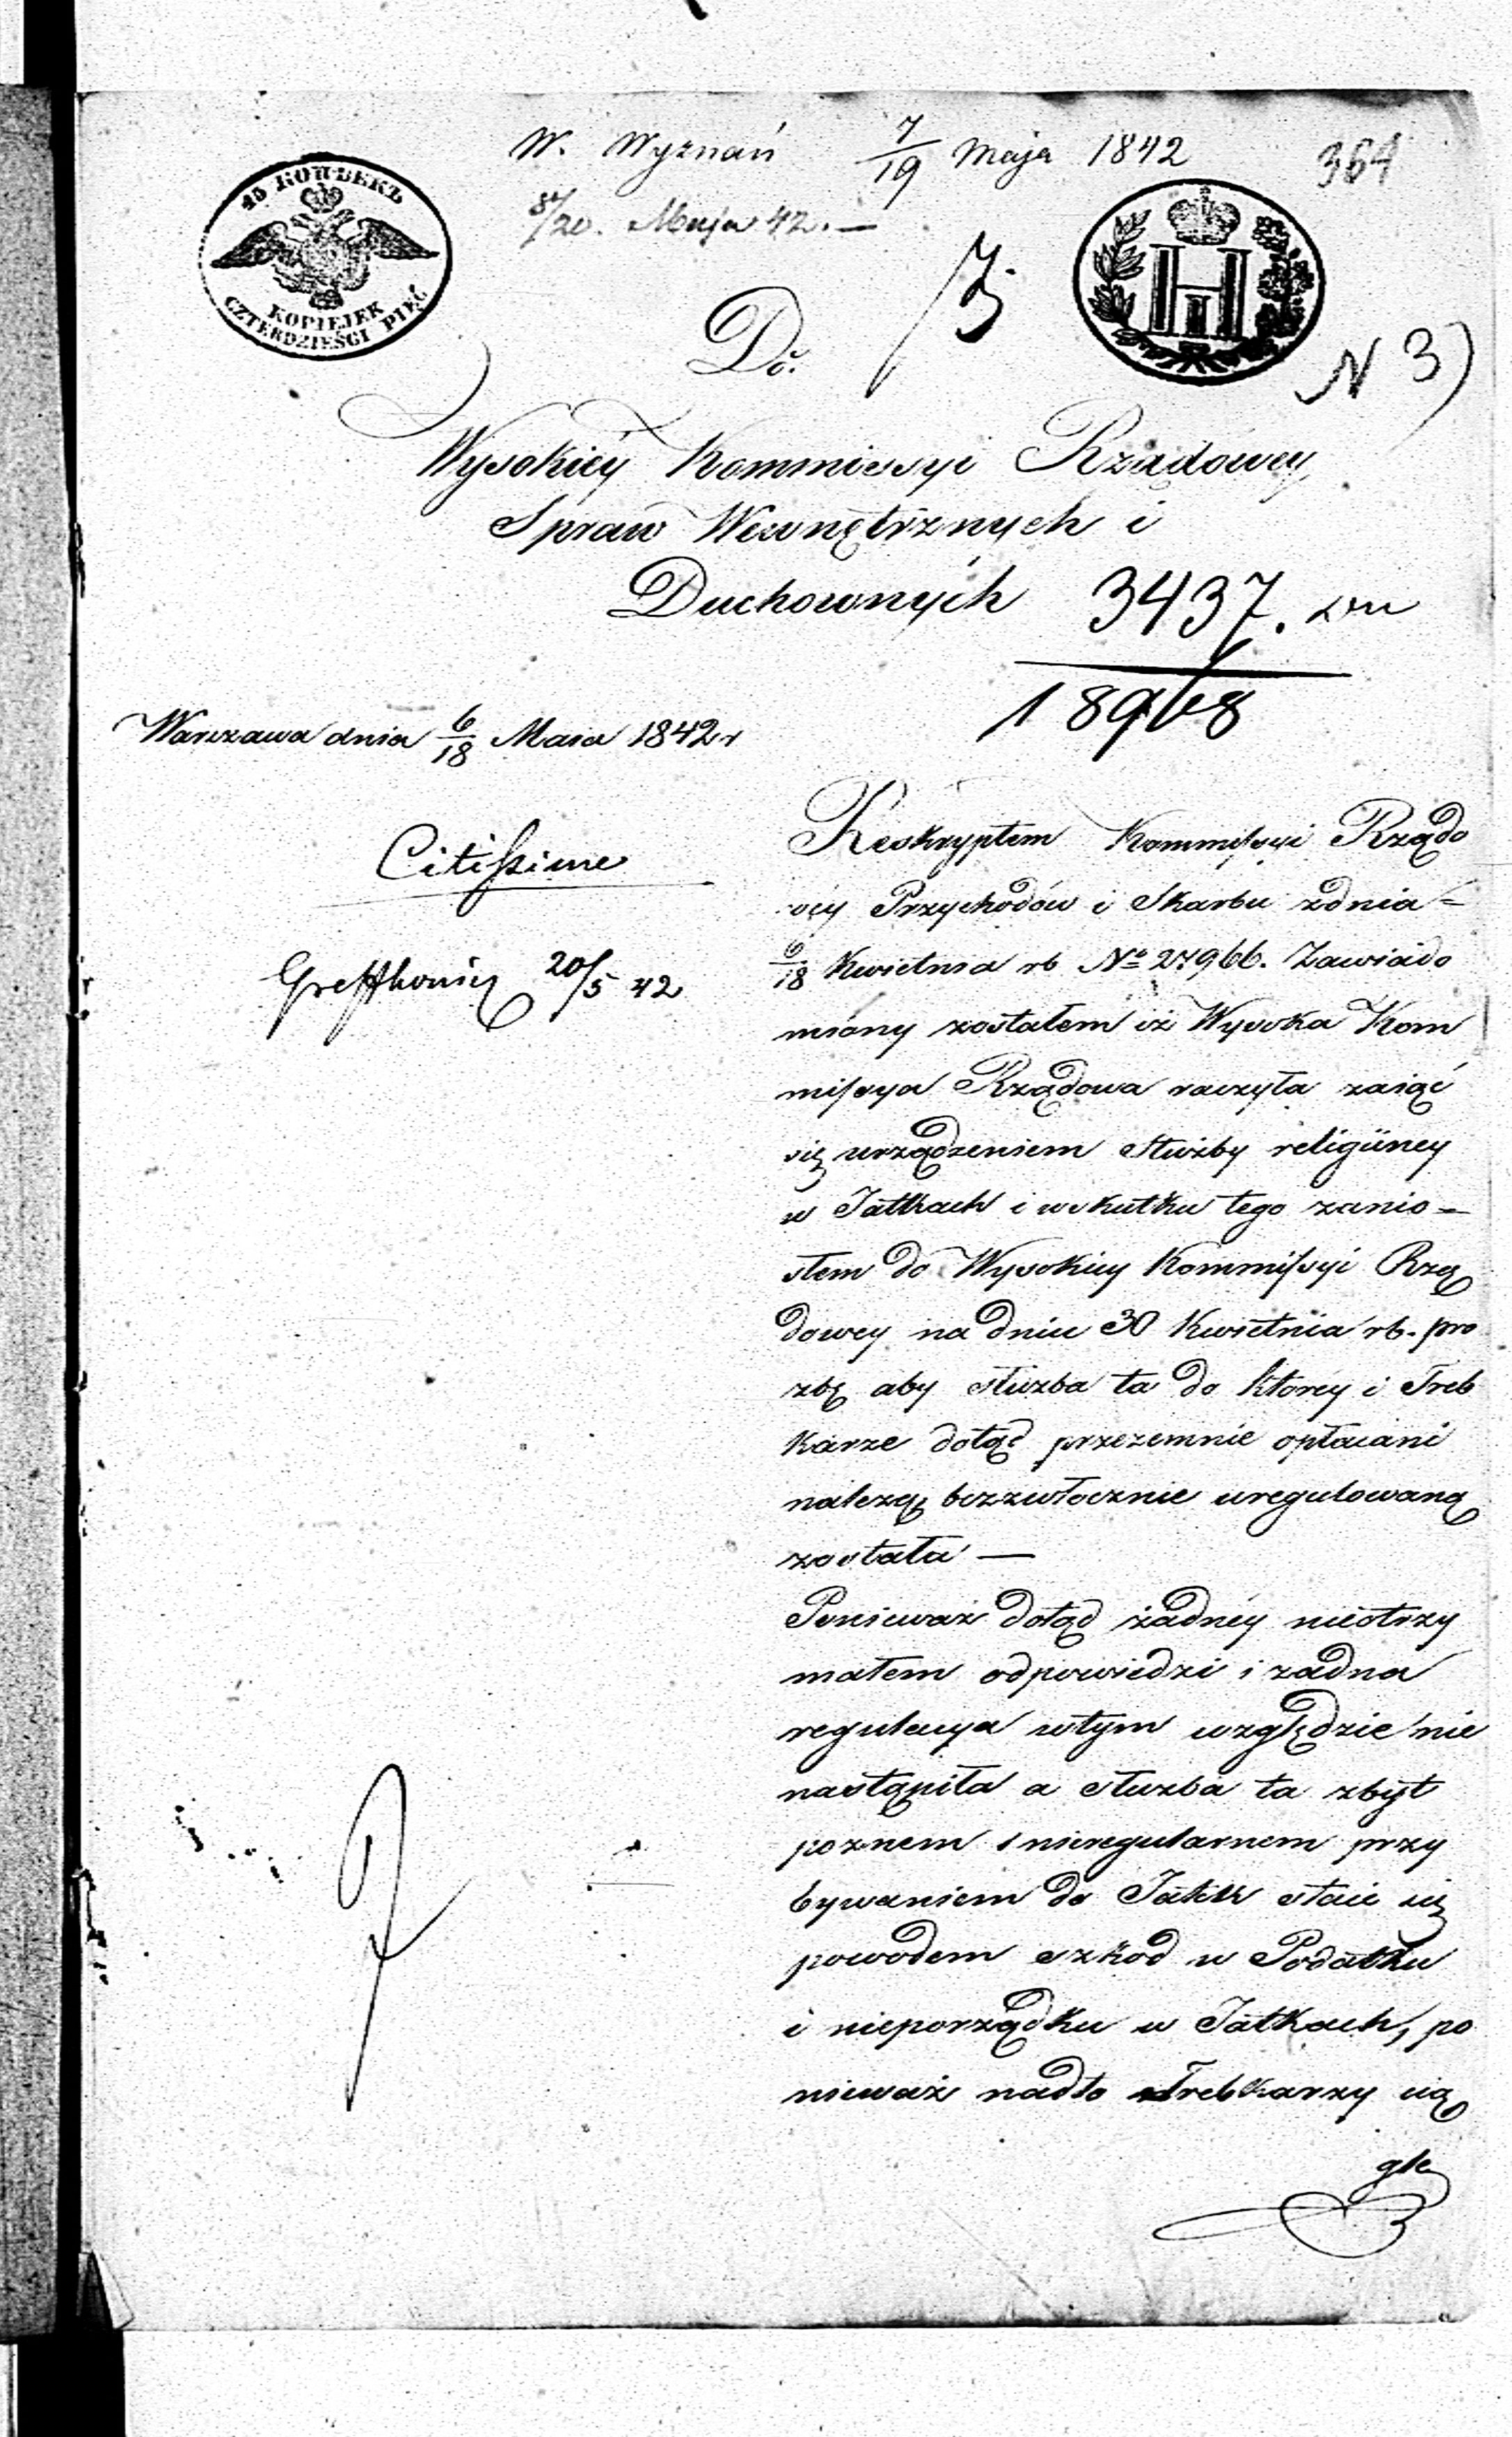 W. Wyznań 7/19 Maja 1842 364
8/20. Maja 42. —
45 КОПѢЕКЪ
KOPIEJEK
CZTERDZIEŚCI PIĘĆ
Do.
N 3)
Wysokiéy Kommissyi Rządowey
Spraw Wewnętrznych i
Duchownych 3437.
18968
Warszawa dnia 6/18 Maia 1842 r
Citissime
20/5 42
Reskryptem Kommissyi Rządo
wéy Przychodów i Skarbu zdnia =
6/18 Kwietnia rb No 27966. Zawiado
miony zostałem iż Wysoka Kom
missya Rządowa raczyła zaiąć
się urządzeniem służby religiiney
w Jatkach i wskutku tego zanio =
słem do Wysokiey Kommissyi Rzą
dowey na dniu 30 Kwietnia rb. pro
zbę aby służba ta do ktorey i Treb
karze dotąd przezemnie opłacani
należą bezzwłocznie uregulowaną
została —
Ponieważ dotąd żadnéy nieotrzy
małem odpowiedzi i żadna
regulacya wtym względzie nie
nastąpiła a służba ta zbyt
poznem i nieregularnem przy
bywaniem do Jatek staie się
powodem szkod w Podatku
i nieporządku w Jatkach, po
nieważ nadto Trebkarzy cią
gle